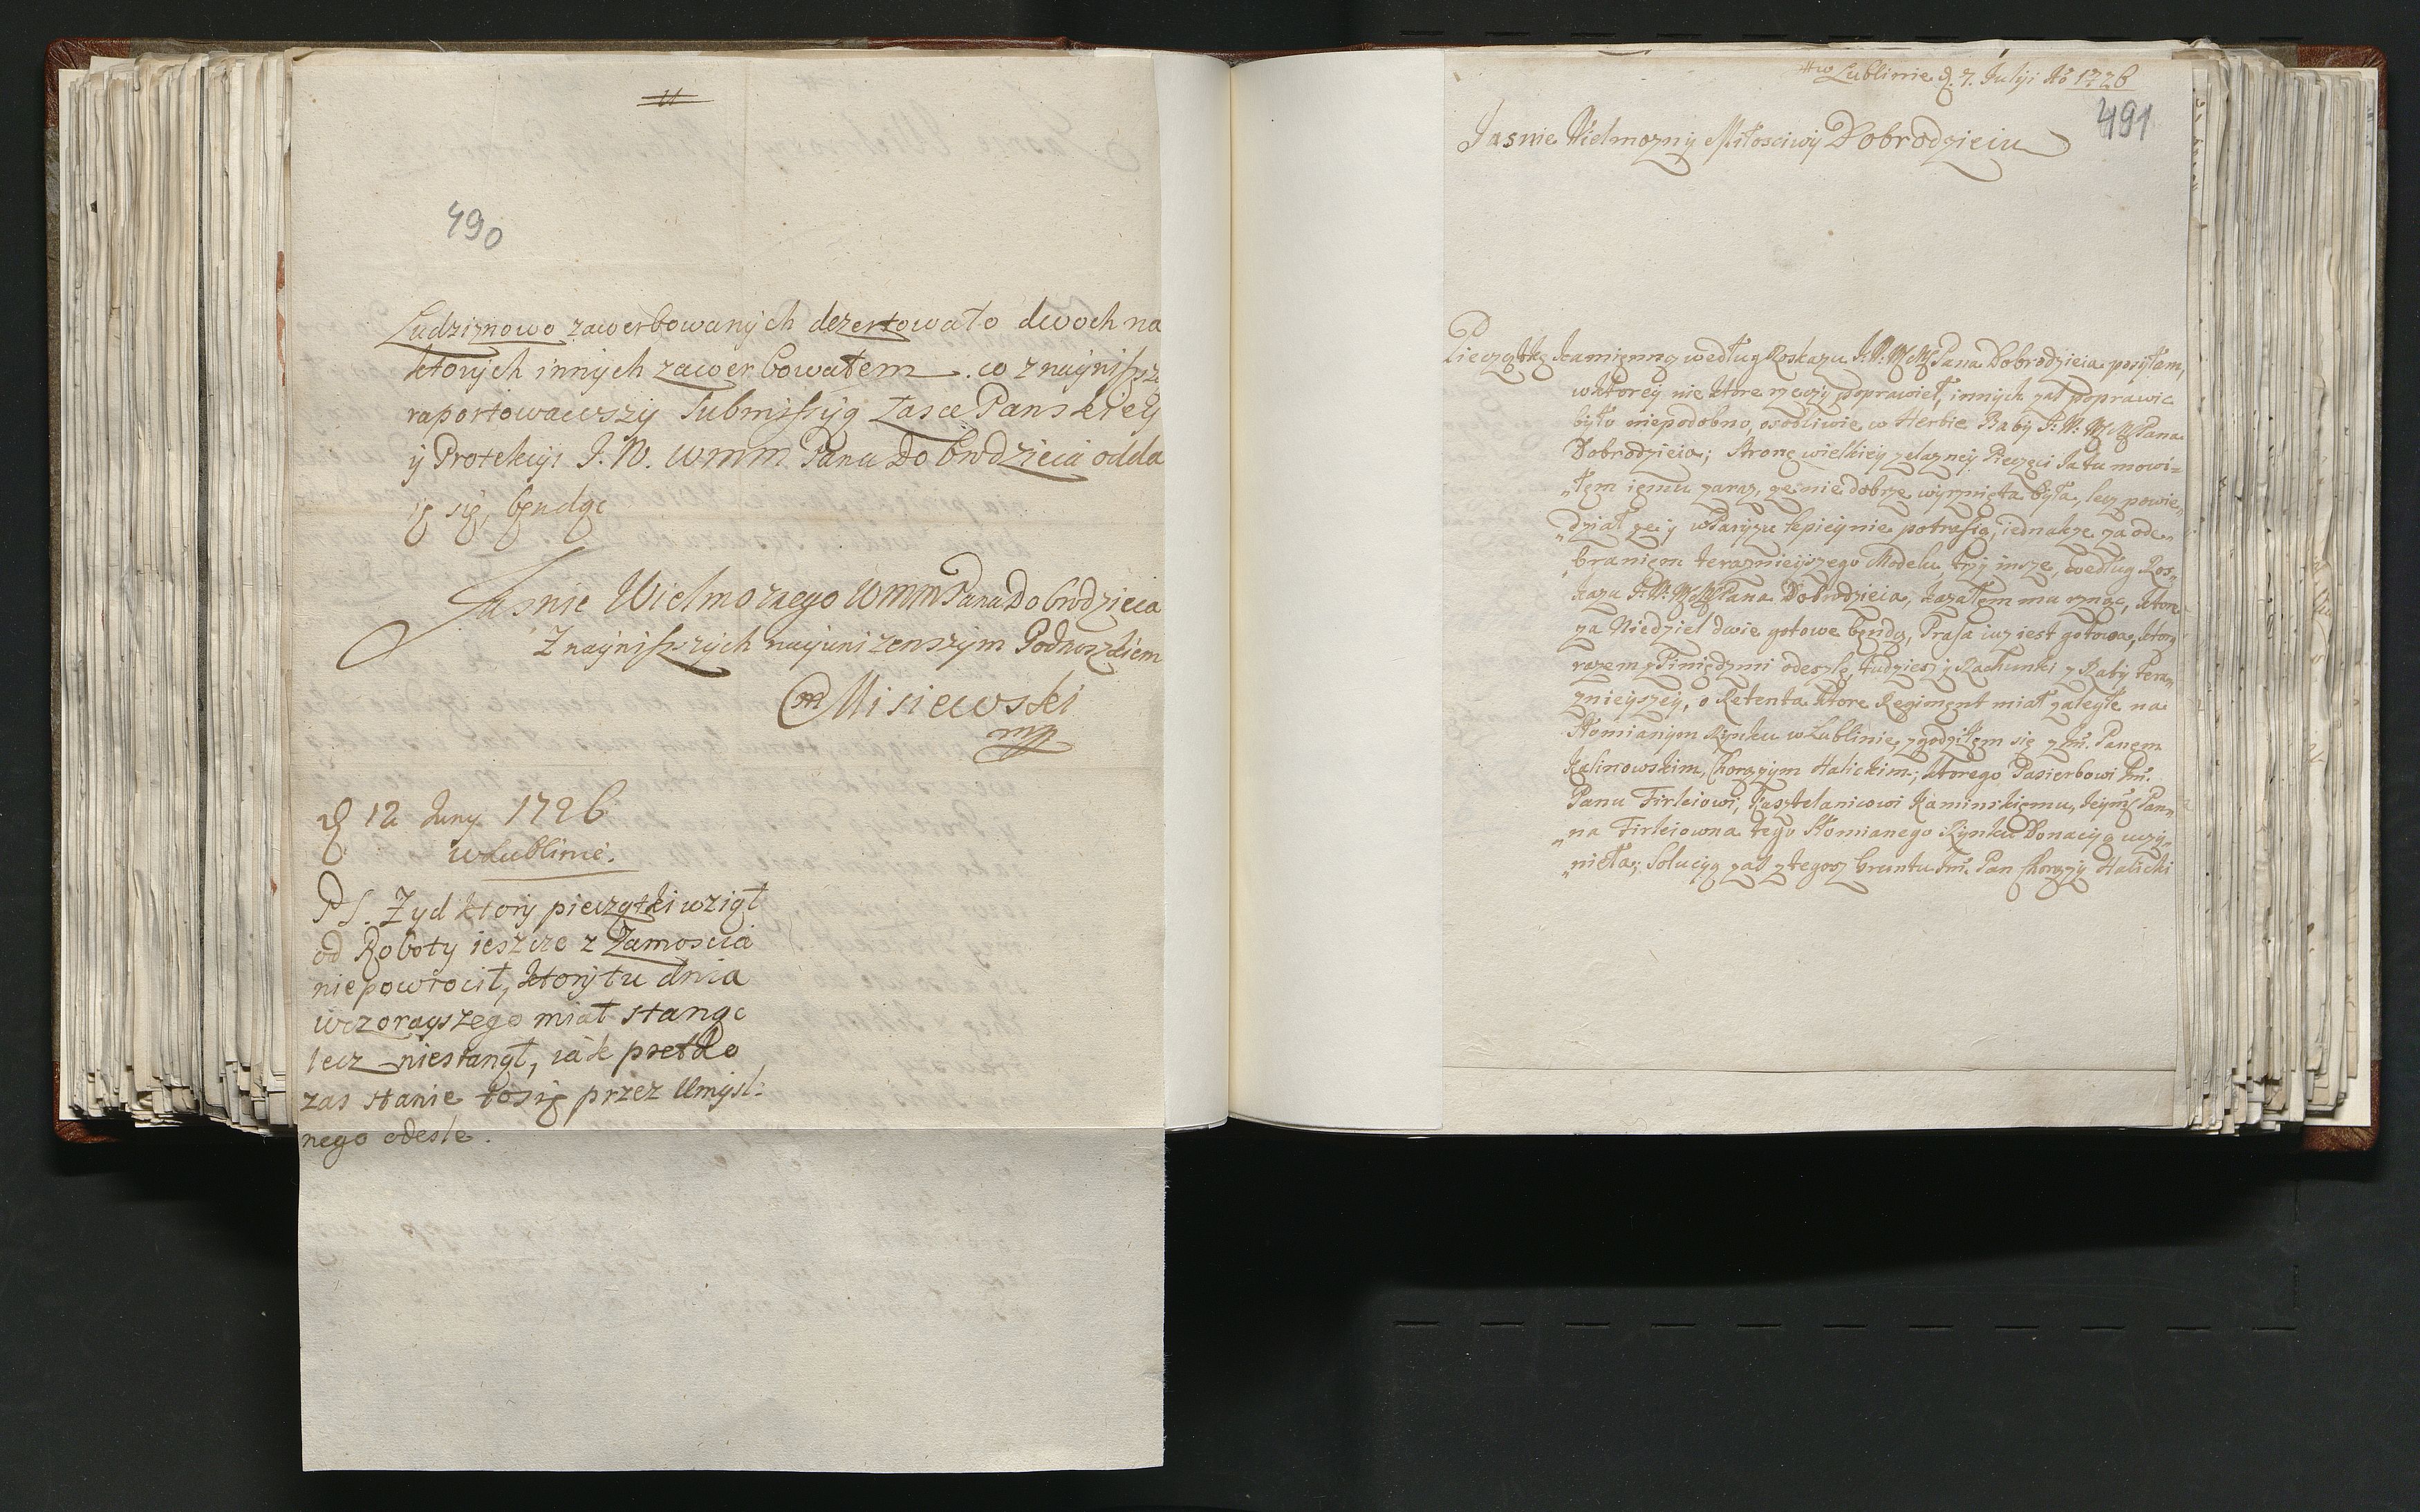 490
Ludzi znowo zawerbowanych dezertowało dwoch na
ktorych innych zawerbowałem. co z nayniższą
raportowawszy Submissyią Łasce Panskiey
y Protekcyi J. W. WMM Pana Dobrodzieia odda
ię się, będąc
Jasnie Wielmoznego WMM Pana Dobrodzieia
Z nayniszszych nayunizenszym Podnozkiem
Misiewski
mp
d 12 Juny 1726
w Lublinie.
PS. Zyd ktory pieczątki wziął
od Roboty ieszcze z Zamoscia
niepowrocił, ktory tu dnia
wczorayszego miał stanąc
lecz niestanął, iak pretko
zas stanie to się przez Umysl:
nego odesle.
w Lublinie d. 7. Julyi Ao 1726
491
Jasnie Wielmozny Miłosciwy Dobrodzieiu
Pieczątkę kamienną według Roskazu J: W: WM Pana Dobrodzieia posyłam,
w ktorey nie ktore rzeczy poprawieł, innych zas poprawic
było niepodobno, osobliwie w Herbie Baby J: W: WM Pana
Dobrodzieia; Stronę wielkiey zelazney Pieczęci Ja tu mowi=
„łem iemu zaraz, ze nie dobrze wyrznięta była, lecz powie„
„dział ze y w Paryzu lepiey nie potrafią, iednakze za ode„
„braniem teraznieyszego Modelu trzy insze, według Ros„
kazu J: W: WM Pana Dobrodzieia, kazałem mu rznąc, ktore
za Niedziel dwie gotowe będą, Prasa iuz iest gotowa, ktorą
razem z Piniędzmi odeszlę, tudziesz y Rachunki z Raty tera„
znieyszey, o Retenta ktore Regiment miał zaległe na
Słomianym Rynku w Lublinie, zgodziłem się z Jmc. Panem
Kalinowskim, Chorązym Halickim; ktorego Pasierbowi Jmc.
Panu Firleiowi, Kasztelanicowi Kaminskiemu, Jeymc Pan„
„na Firleiowna tego Słomianego Rynku Donacyą uczy„
„nieła; Solucyą zas z tegosz Gruntu Jmc. Pan Chorązy Halicki